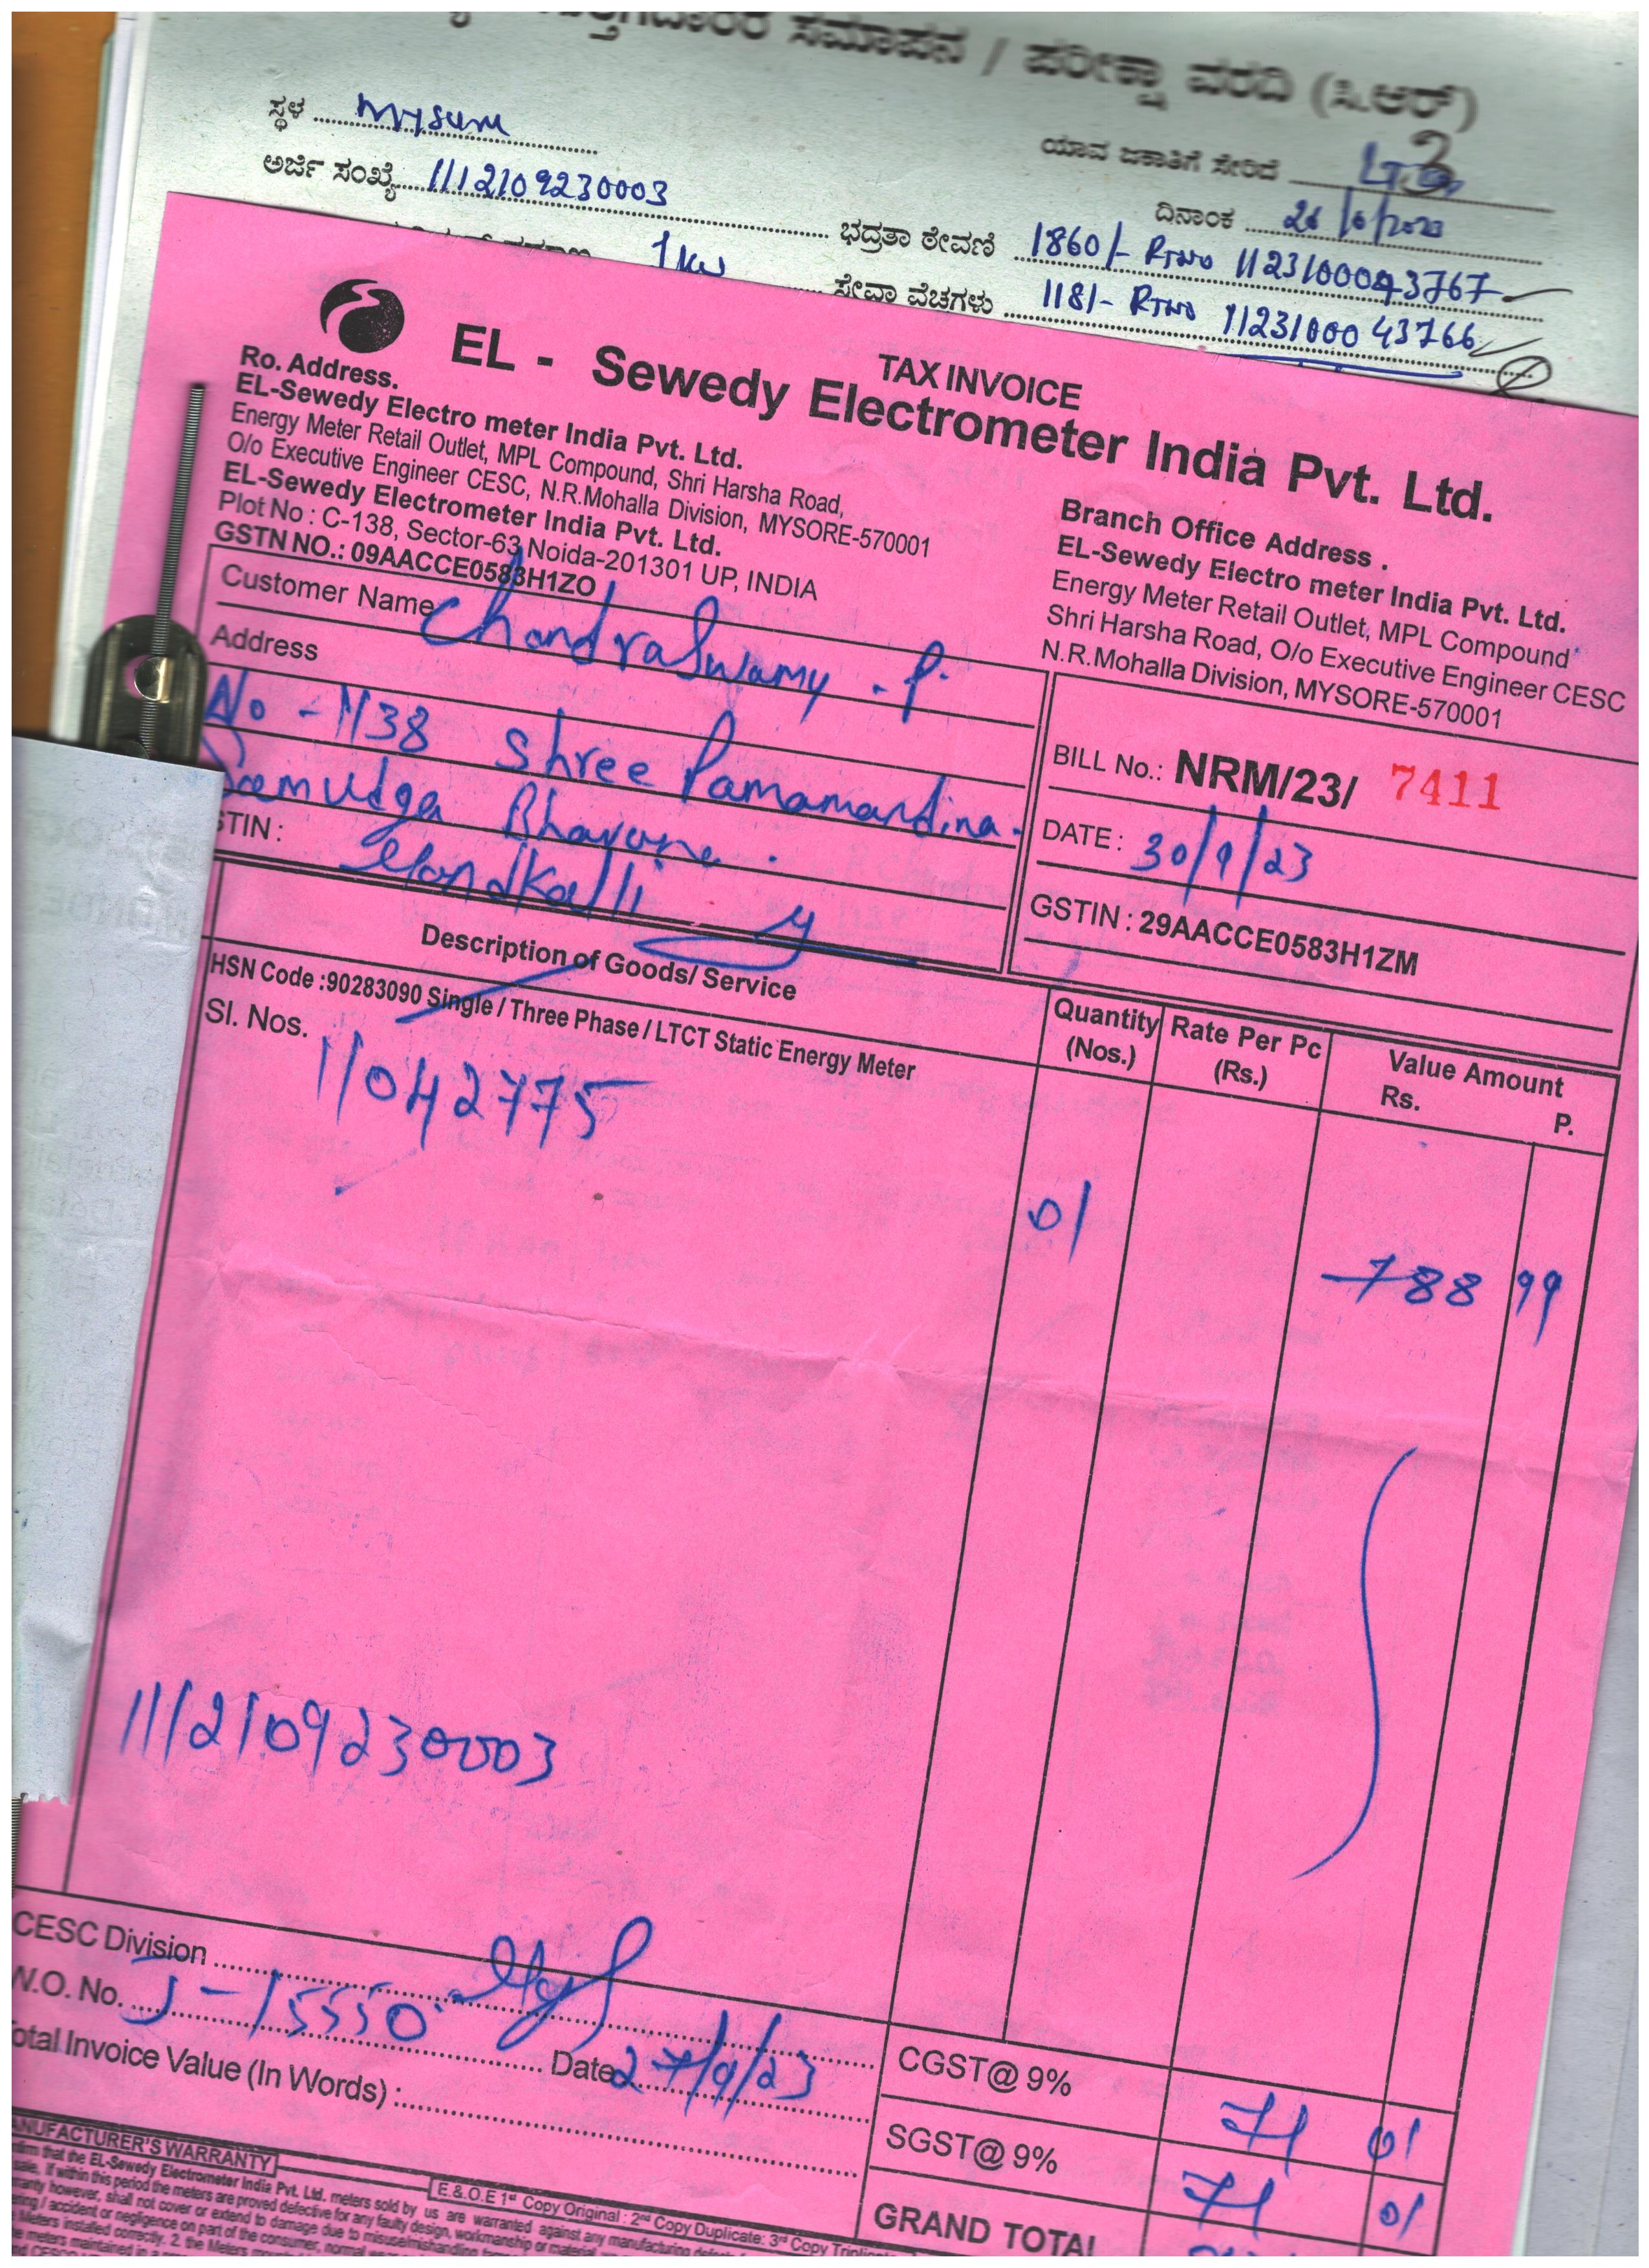 ಸಮಾಪನ / ಪರೀಕ್ಷಾ ವರದಿ (ಸಿ.ಆರ್)
ಸ್ಥಳ
ಯಾವ ಜಕಾತಿಗೆ ಸೇರಿದೆ
ಅರ್ಜಿ ಸಂಖ್ಯೆ 1112109230003
ದಿನಾಂಕ
1kw
ಭದ್ರತಾ ಠೇವಣಿ 1860/-
ಸೇವಾ ವೆಚಗಳು 1181- 11231000 43766
TAX INVOICE
EL - Sewedy Electrometer India Pvt. Ltd.
Ro. Address.
EL-Sewedy Electro meter India Pvt. Ltd.
Energy Meter Retail Outlet, MPL Compound, Shri Harsha Road,
O/o Executive Engineer CESC, N.R.Mohalla Division, MYSORE-570001
EL-Sewedy Electrometer India Pvt. Ltd.
Plot No : C-138, Sector-63 Noida-201301 UP, INDIA
GSTN NO.: 09AACCE0583H1ZO
Branch Office Address .
EL-Sewedy Electro meter India Pvt. Ltd.
Energy Meter Retail Outlet, MPL Compound
Shri Harsha Road, O/o Executive Engineer CESC
N.R.Mohalla Division, MYSORE-570001
Customer Name ChandraSwamy . P.
Address
No - 1138 Shree
Bhavana .
STIN :
BILL No.: NRM/23/ 7411
DATE : 30/9/23
GSTIN : 29AACCE0583H1ZM
Description of Goods/ Service
HSN Code :90283090 Single / Three Phase / LTCT Static Energy Meter
Sl. Nos.
11042775
Quantity (Nos.)
Rate Per Pc (Rs.)
Value Amount
Rs. P.
01
788 99
1112109230003
CESC Division
W.O. No. J-15550 Date 27/9/23
Total Invoice Value (In Words) :
CGST@ 9% 71 01
SGST@ 9% 71 01
GRAND TOTAL
MANUFACTURER'S WARRANTY
E.& O.E 1st Copy Original : 2nd Copy Duplicate: 3rd Copy
that the EL-Sewedy Electrometer India Pvt. Ltd. meters sold by us are warranted against any manufacturing
sale. If within this period the meters are proved defective for any faulty design, workmanship or material
however, shall not cover or extend to damage due to misuse/mishandling
/ accident or negligence on part of the consumer, normal
Meters installed correctly. 2. the Meters